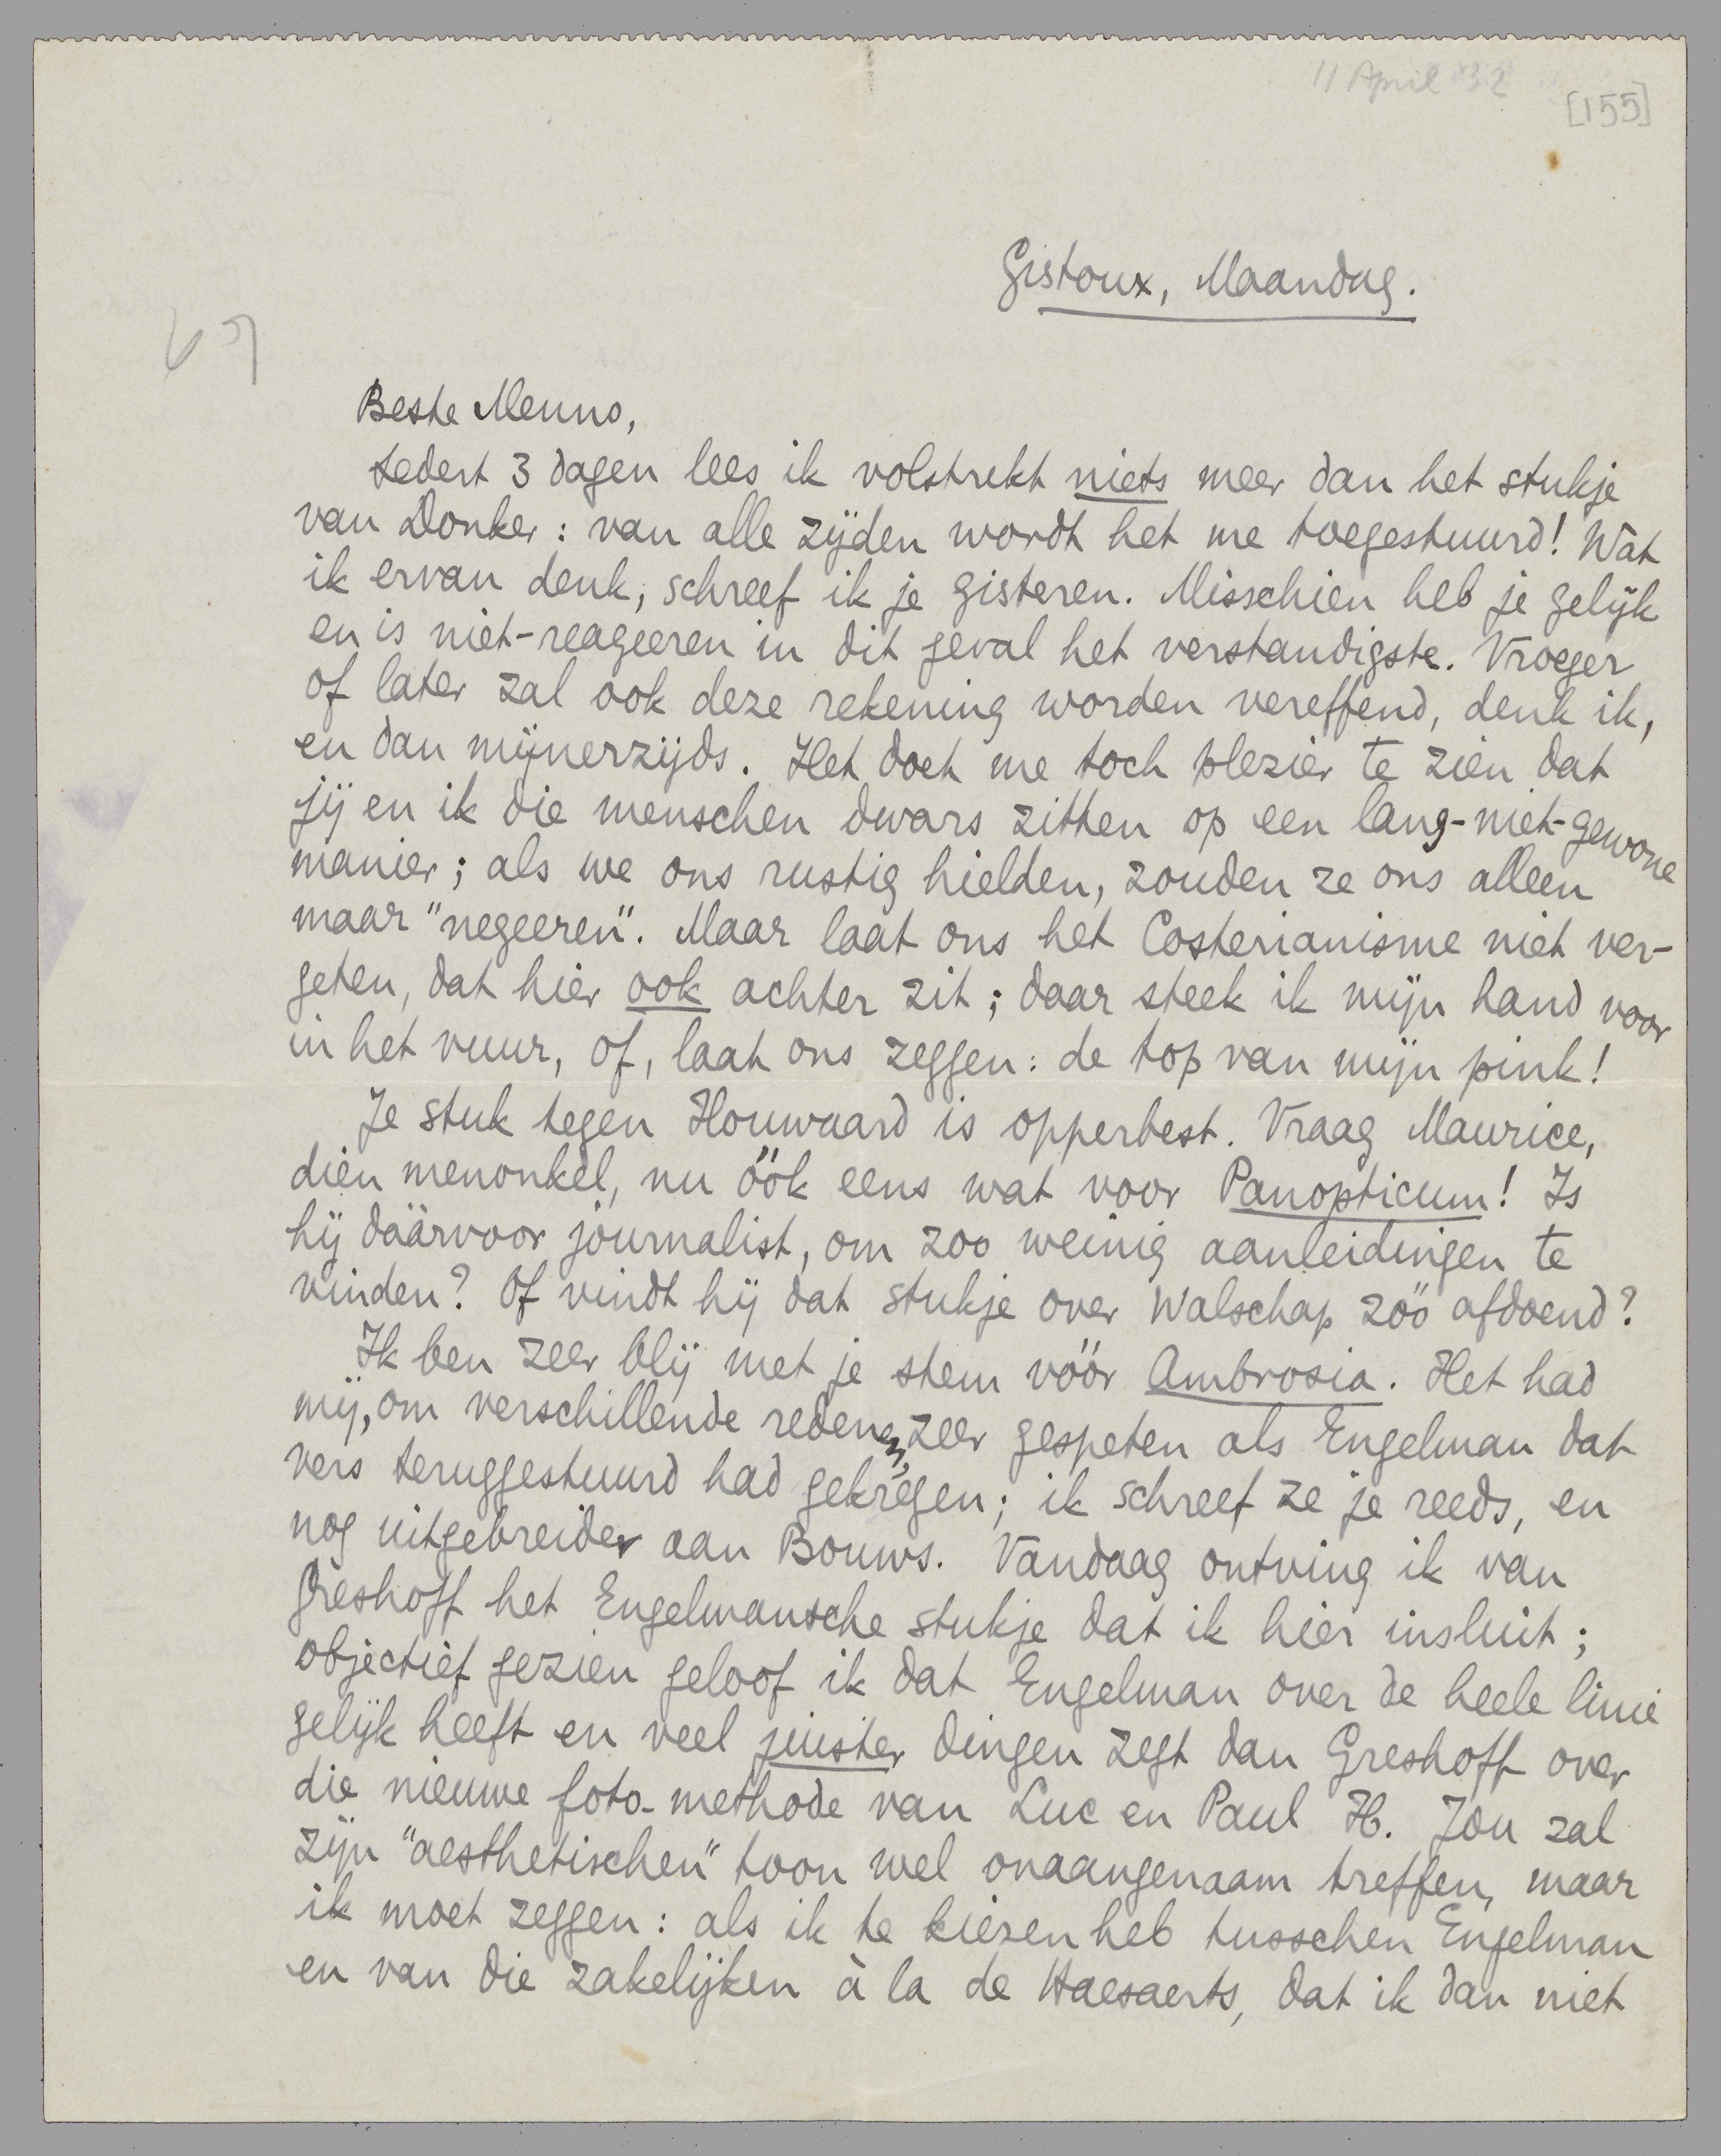 11 April '32
[155]
Gistoux, Maandag.
Beste Menno,
Sedert 3 dagen lees ik volstrekt niets meer dan het stukje
van Donker: van alle zijden wordt het me toegestuurd! Wat
ik ervan denk, schreef ik je gisteren. Misschien heb je gelijk
en is niet-reageeren in dit geval het verstandigste. Vroeger
of later zal ook deze rekening worden vereffend, denk ik,
en dan mijnerzijds. Het doet me toch plezier te zien dat
jij en ik die menschen dwars zitten op een lang-niet-gewone
manier; als we ons rustig hielden, zouden ze ons alleen
maar "negeeren". Maar laat ons het Costerianisme niet ver-
geten, dat hier ook achter zit; daar steek ik mijn hand voor
in het vuur, of, laat ons zeggen: de top van mijn pink!
Je stuk tegen Houwaard is opperbest. Vraag Maurice,
dien menonkel, nu óók eens wat voor Panopticum! Is
hij dáárvoor journalist, om zoo weinig aanleidingen te
vinden? Of vindt hij dat stukje over Walschap zóó afdoend?
Ik ben zeer blij met je stem vóór Ambrosia. Het had
mij, om verschillende redenen, zeer gespeten als Engelman dat
vers teruggestuurd had gekregen; ik schreef ze je reeds, en
nog uitgebreider aan Bouws. Vandaag ontving ik van
Greshoff het Engelmansche stukje dat ik hier insluit;
objectief gezien geloof ik dat Engelman over de heele linie
gelijk heeft en veel juister dingen zegt dan Greshoff over
die nieuwe foto-methode van Luc en Paul H. Jou zal
zijn "aesthetischen" toon wel onaangenaam treffen, maar
ik moet zeggen: als ik te kiezen heb tusschen Engelman
en van die zakelijken à la de Haesaerts, dat ik dan niet